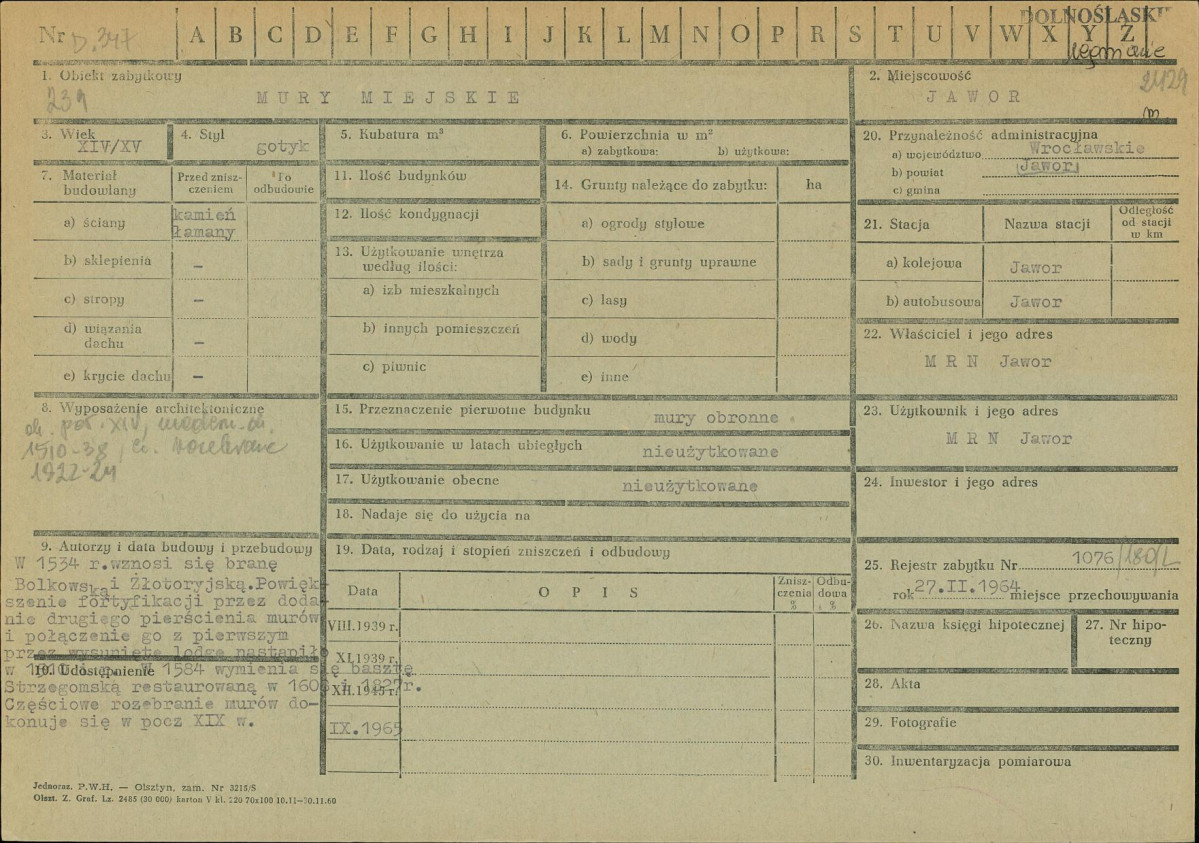 DOLNOŚLĄSKIE
Nr D.347 A B C D E F G H I J K L M N O P R S T U V W X Y Z
1. Obiekt zabytkowy
239
MURY MIEJSKIE
2. Miejscowość
2429
JAWOR
m
3. Wiek
XIV/XV
4. Styl
gotyk
5. Kubatura m³
6. Powierzchnia w m²
a) zabytkowa: b) użytkowa:
20. Przynależność administracyjna
a) województwo Wrocławskie
b) powiat Jawor
c) gmina
7. Materiał budowlany
Przed zniszczeniem
Po odbudowie
a) ściany kamień łamany
b) sklepienia –
c) stropy –
d) wiązania dachu –
e) krycie dachu –
11. Ilość budynków
12. Ilość kondygnacji
13. Użytkowanie wnętrza
według ilości:
a) izb mieszkalnych
b) innych pomieszczeń
c) piwnic
14. Grunty należące do zabytku: ha
a) ogrody stylowe
b) sady i grunty uprawne
c) lasy
d) wody
e) inne
21. Stacja Nazwa stacji Odległość od stacji w km
a) kolejowa Jawor
b) autobusowa Jawor
22. Właściciel i jego adres
MRN Jawor
8. Wyposażenie architektoniczne
poł. XIV,
1510-38,
1922-24
15. Przeznaczenie pierwotne budynku mury obronne
16. Użytkowanie w latach ubiegłych nieużytkowane
17. Użytkowanie obecne nieużytkowane
18. Nadaje się do użycia na
23. Użytkownik i jego adres
MRN Jawor
24. Inwestor i jego adres
9. Autorzy i data budowy i przebudowy
W 1534 r.wznosi się branę
Bolkowską i Złotoryjską.Powięk-
szenie fortyfikacji przez doda-
nie drugiego pierścienia murów
i połączenie go z pierwszym
przez wysuniętę lodgę nastąpiło
10. Udostępnienie
W 1584 wymienia się basztę
Strzegomską restaurowaną w 1606 i 1827r.
Częściowe rozebranie murów do-
konuje się w pocz XIX w.
19. Data, rodzaj i stopień zniszczeń i odbudowy
Data OPIS Zniszczenia % Odbudowa %
VIII.1939 r.
XI.1939 r.
XII.1945 r.
IX.1965
25. Rejestr zabytku Nr 1076/180/L
rok 27.II.1964 miejsce przechowywania
26. Nazwa księgi hipotecznej
27. Nr hipoteczny
28. Akta
29. Fotografie
30. Inwentaryzacja pomiarowa
Jednoraz. P.W.H. — Olsztyn, zam. Nr 3215/S
Olszt. Z. Graf. Lz. 2485 (30 000) karton V kl. 220 70x100 10.11—10.11.60